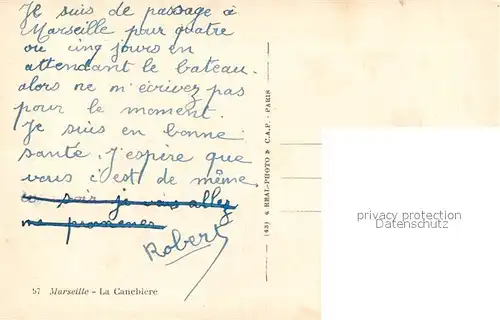 Je suis de passage à
Marseille pour quatre
ou cinq jours en
attendant le bateau.
alors ne m'écrivez pas
pour le moment.
Je suis en bonne
santé. J'espère que
vous c'est de même
ce soir je vais allez
me promener
Robert
57 Marseille - La Canebière
(43) « REAL-PHOTO » C.A.P. - PARIS
privacy protection
Datenschutz